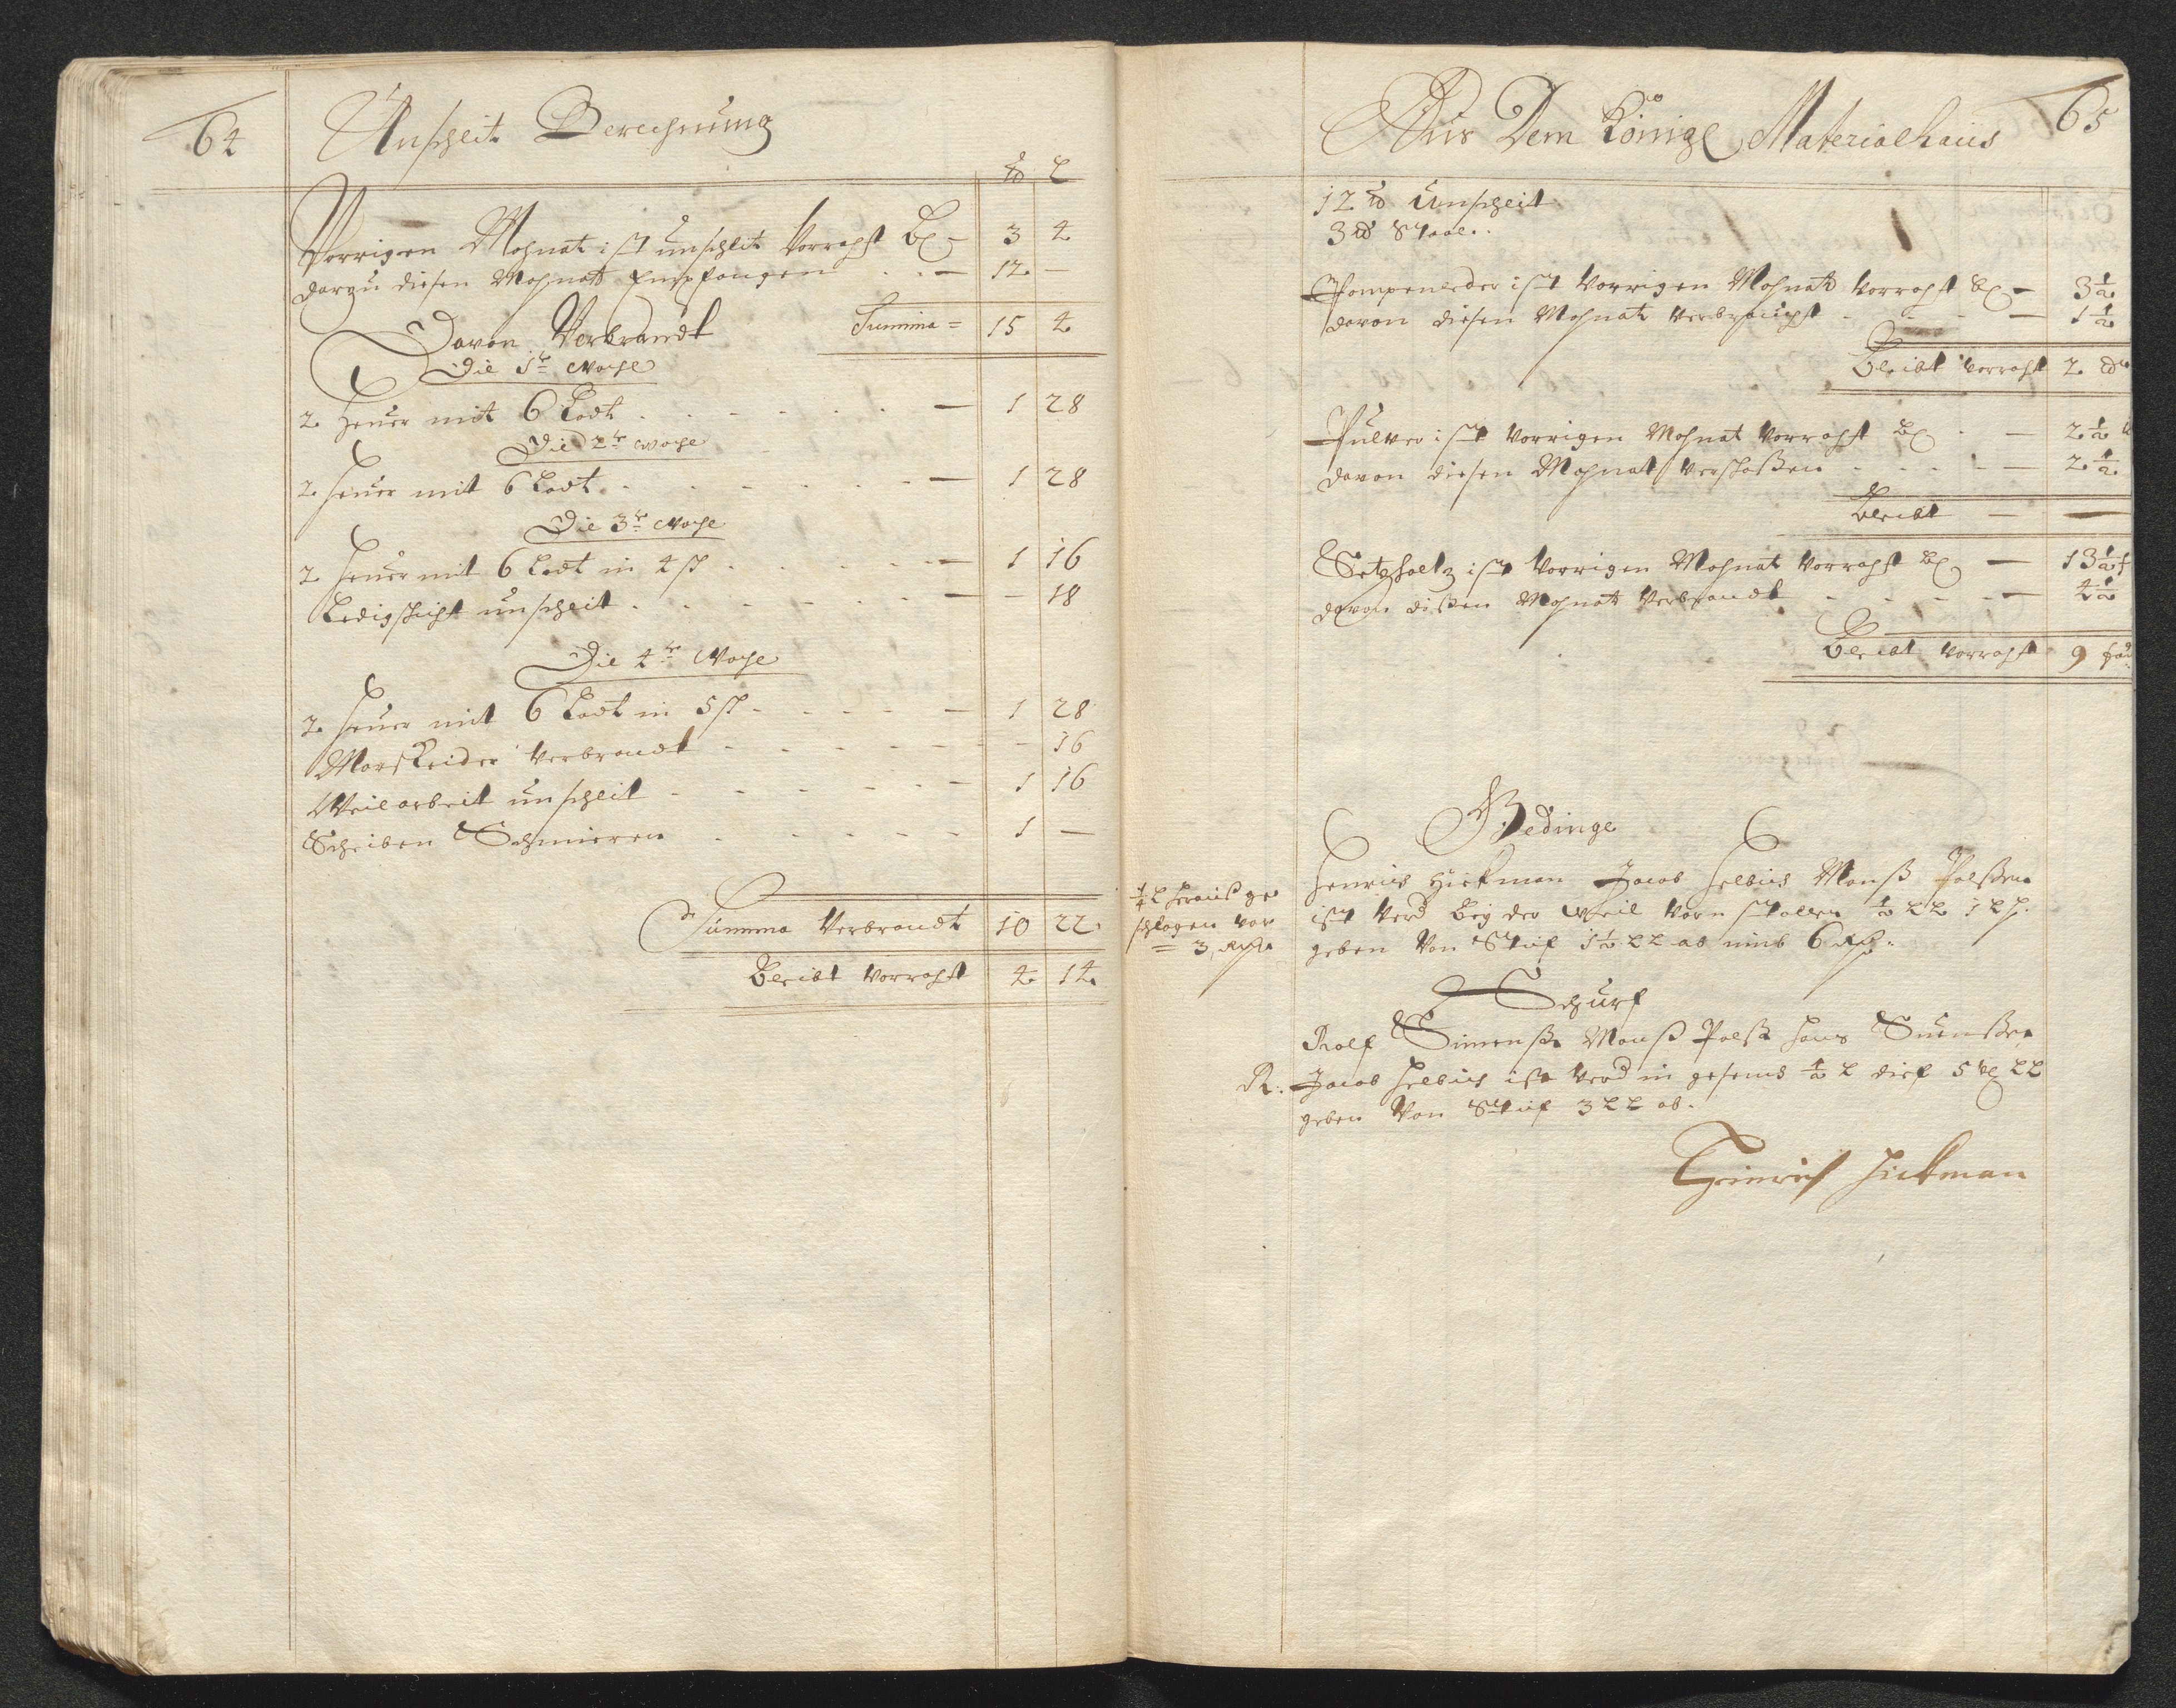 64
Unschleit Berechnung
℔ L
Vorrigen Mohnat ist unschlit Vorraht Bl 3 4
darzu diesen Mohnat Empfangen 12 —
Summa = 15 4
Davon Verbrandt
Die 1te Woche
2 heuer mit 6 Lodt 1 28
Die 2te Woche
2 heuer mit 6 Lodt 1 28
Die 3te Woche
2 heuer mit 6 Lodt in 4 sch 1 16
Ledigschicht unschleit — 18
Die 4te Woche
2 heuer mit 6 Lodt in 5 sch 1 28
Marscheider Verbrandt — 16
Weilarbeit unschleit 1 16
Scheiben Schmieren 1 —
Summa Verbrandt 10 22
Bleibt Vorraht 4 14
65
Aus Dem Königl Materialhaus
12 ℔ Unschleit
3 ℔ Staal
Pompenleder ist Vorrigen Mohnat Vorraht Bl 3½
davon diesen Mohnat Verbraucht — 1½
Bleibt Vorraht 2 ℔
Pulver ist Vorrigen Mohnat Vorraht Bl — 2½
davon diesen Mohnat Verschoßen — 2½
Bleibt — —
Setzholtz ist Vorrigen Mohnat Vorraht Bl — 13½ f
davon dißen Mohnat Verbrandt — 4½
Bleibt Vorraht 9 fad
Gedinge
¼ L herauß ge
schlagen vor
= 3
Henrich Hickman Jacob Helbich Monß Polßen
ist Verd bey der Weil Vorn stollen ½ LL 1 L
geben Von Stuf 1½ LL ab nimb 6
Schurf
Rolf Simenßen Monß Polßen Hans Suenßen
R. Jacob Helbich ist Verd in gesenck ½ L dief 5 LL
geben Von Stuf 3 LL ab.
Heinrich Hickman